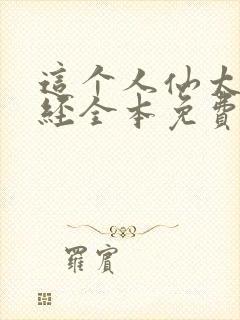 這个人仙太
經全本免費
羅賓